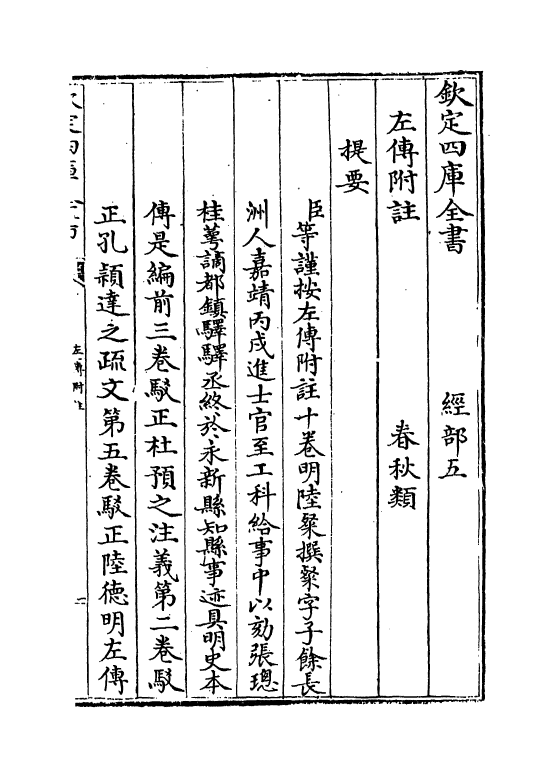 欽定四庫全書　經部五
左傳附註　春秋類
提要
臣等謹按左傳附註十卷明陸粲撰粲字子餘長
洲人嘉靖丙戌進士官至工科給事中以劾張璁
桂萼謫都鎮驛驛丞終於永新縣知縣事迹具明史本
傳是編前三卷駁正杜預之注義第二卷駁
正孔穎達之疏文第五卷駁正陸德明左傳
左傳附註